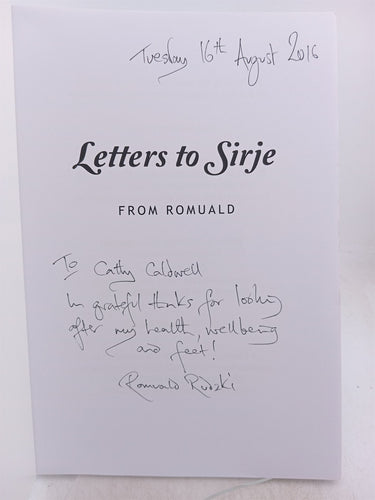 Tuesday 16th August 2016
Letters to Sirje
FROM ROMUALD
To Cathy Caldwell
In grateful thanks for looking
after my health, wellbeing
and feet!
Romuald Rudzki